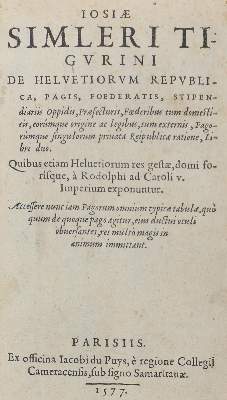 IOSIÆ
SIMLERI TI-
GVRINI
DE HELVETIORVM REPVBLI-
CA, PAGIS, FOEDERATIS, STIPEN-
diariis Oppidis, Præfecturis, Fœderibus tum domesti-
cis, eorúmque origine ac legibus, tum externis, Pago-
rúmque singulorum priuata Reipublicæ ratione, Li-
bri duo.
Quibus etiam Heluetiorum res gestæ, domi fo-
rísque, à Rodolphi ad Caroli v.
Imperium exponuntur.
Accessere nunc iam Pagorum omnium typicæ tabulæ, quò
quum de quoque pago agitur, eius ductus oculis
obuersantes, res multò magis in
animum immittant.
PARISIIS.
Ex officina Iacobi du Puys, è regione Collegij
Cameracensis, sub signo Samaritanæ.
1577.